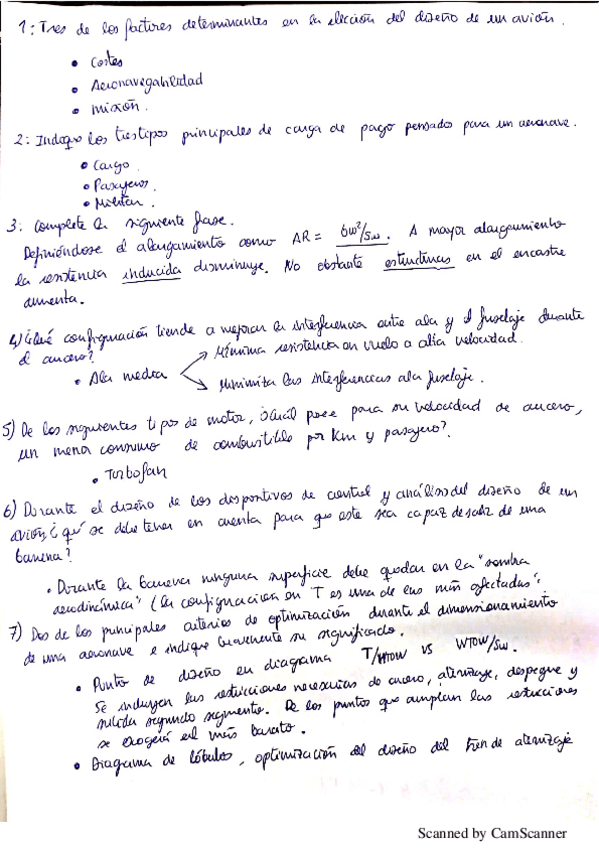 1: Tres de los factores determinantes en la elección del diseño de un avión.
• Costes
• Aeronavegabilidad
• misión.
2: Indique los tres tipos principales de carga de pago pensados para una aeronave.
• Cargo.
• Pasajeros.
• Militar.
3: Complete la siguiente frase.
Definiéndose el alargamiento como AR = bw²/Sw. A mayor alargamiento
la resistencia inducida disminuye. No obstante estructuras en el encastre
aumenta.
4) ¿Qué configuración tiende a mejorar la interferencia entre ala y el fuselaje durante
el crucero?
• Ala media
Mínima resistencia en vuelo a alta velocidad.
Minimiza las interferencias ala fuselaje.
5) De los siguientes tipos de motor, ¿cuál posee para su velocidad de crucero,
un menor consumo de combustible por Km y pasajero?
• Turbofan
6) Durante el diseño de los dispositivos de control y análisis del diseño de un
avión, ¿qué se debe tener en cuenta para que este sea capaz de salir de una
barrena?
• Durante la barrena ninguna superficie debe quedar en la "sombra
aerodinámica" (la configuración en T es una de las más afectadas".
7) Dos de los principales criterios de optimización durante el dimensionamiento
de una aeronave e indique brevemente su significado.
• Punto de diseño en diagrama T/WTOW vs WTOW/Sw.
Se incluyen las restricciones necesarias de crucero, aterrizaje, despegue y
subida segundo segmento. De los puntos que cumplan las restricciones
se escogerá el más barato.
• Diagrama de lóbulos, optimización del diseño del tren de aterrizaje
Scanned by CamScanner